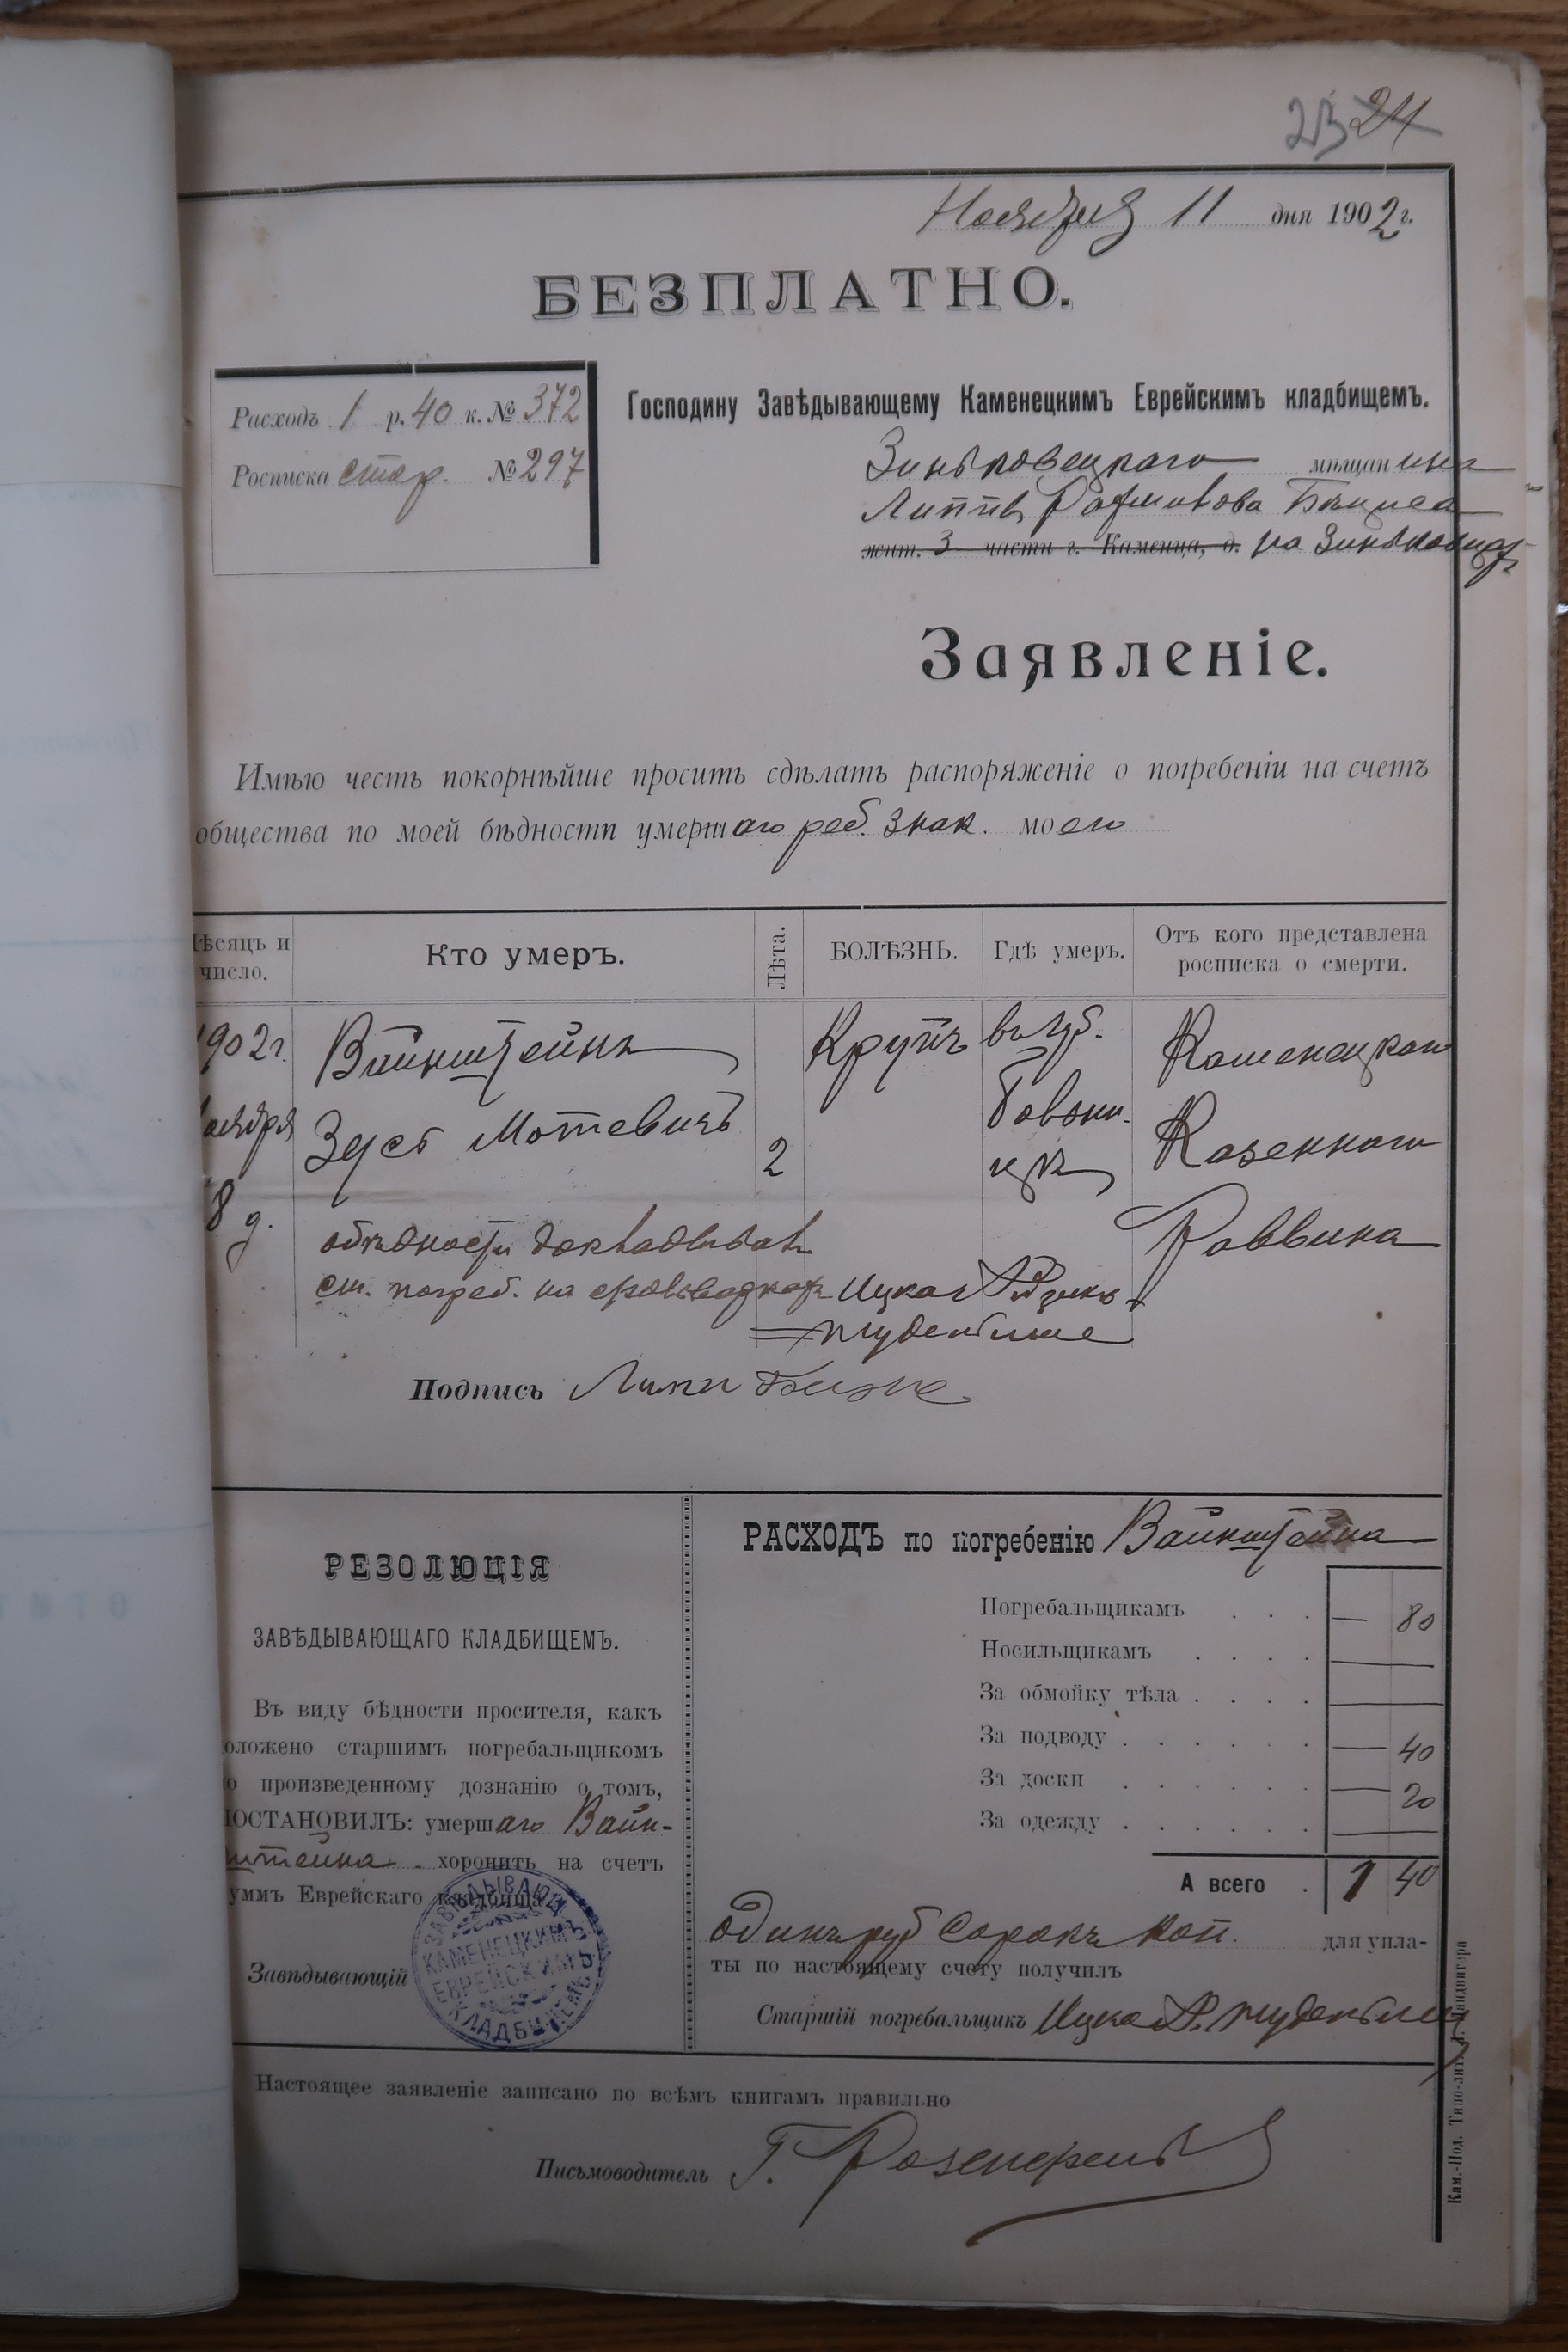 23 24
Ноября 11 дня 1902 г.
БЕЗПЛАТНО.
Расходъ 1 р. 40 к. № 372
Росписка стар. № 297
Господину Завѣдывающему Каменецкимъ Еврейскимъ кладбищемъ.
Зиньковецкаго мѣщанина
Липпѣ
жит. 3 части г. Каменца, д. на Зиньковцах
Заявленіе.
Имѣю честь покорнѣйше просить сдѣлать распоряженіе о погребеніи на счетъ
общества по моей бѣдности умершаго реб. знак. моего
ѣсяцъ и число.
Кто умеръ.
Лѣта.
БОЛѢЗНЬ.
Гдѣ умеръ.
Отъ кого представлена росписка о смерти.
902 г. Вайнштейнъ Крупъ Каменецкаго
оября Зусь Мотевичъ 2 Казеннаго
8 д. Раввина
ст. погреб.
Подпись Липи
РЕЗОЛЮЦІЯ
ЗАВѢДЫВАЮЩАГО КЛАДБИЩЕМЪ.
Въ виду бѣдности просителя, какъ
оложено старшимъ погребальщикомъ
о произведенному дознанію о томъ,
ПОСТАНОВИЛЪ: умершаго Вайн-
штейна хоронить на счетъ
уммъ Еврейскаго кладбища.
Завѣдывающій
ЗАВѢДЫВАЮЩ
КАМЕНЕЦКИМЪ
ЕВРЕЙСКИМЪ
КЛАДБИЩЕМЪ
РАСХОДЪ по погребенію Вайнштейна
Погребальщикамъ . . . — 80
Носильщикамъ . . . . —
За обмойку тѣла . . . . —
За подводу . . . . . . — 40
За доски . . . . . . — 20
За одежду . . . . . . —
А всего . 1 40
Одинъ руб сорокъ коп. для упла-
ты по настоящему счету получилъ
Старшій погребальщикъ Ицко
Настоящее заявленіе записано по всѣмъ книгамъ правильно
Письмоводитель Г.